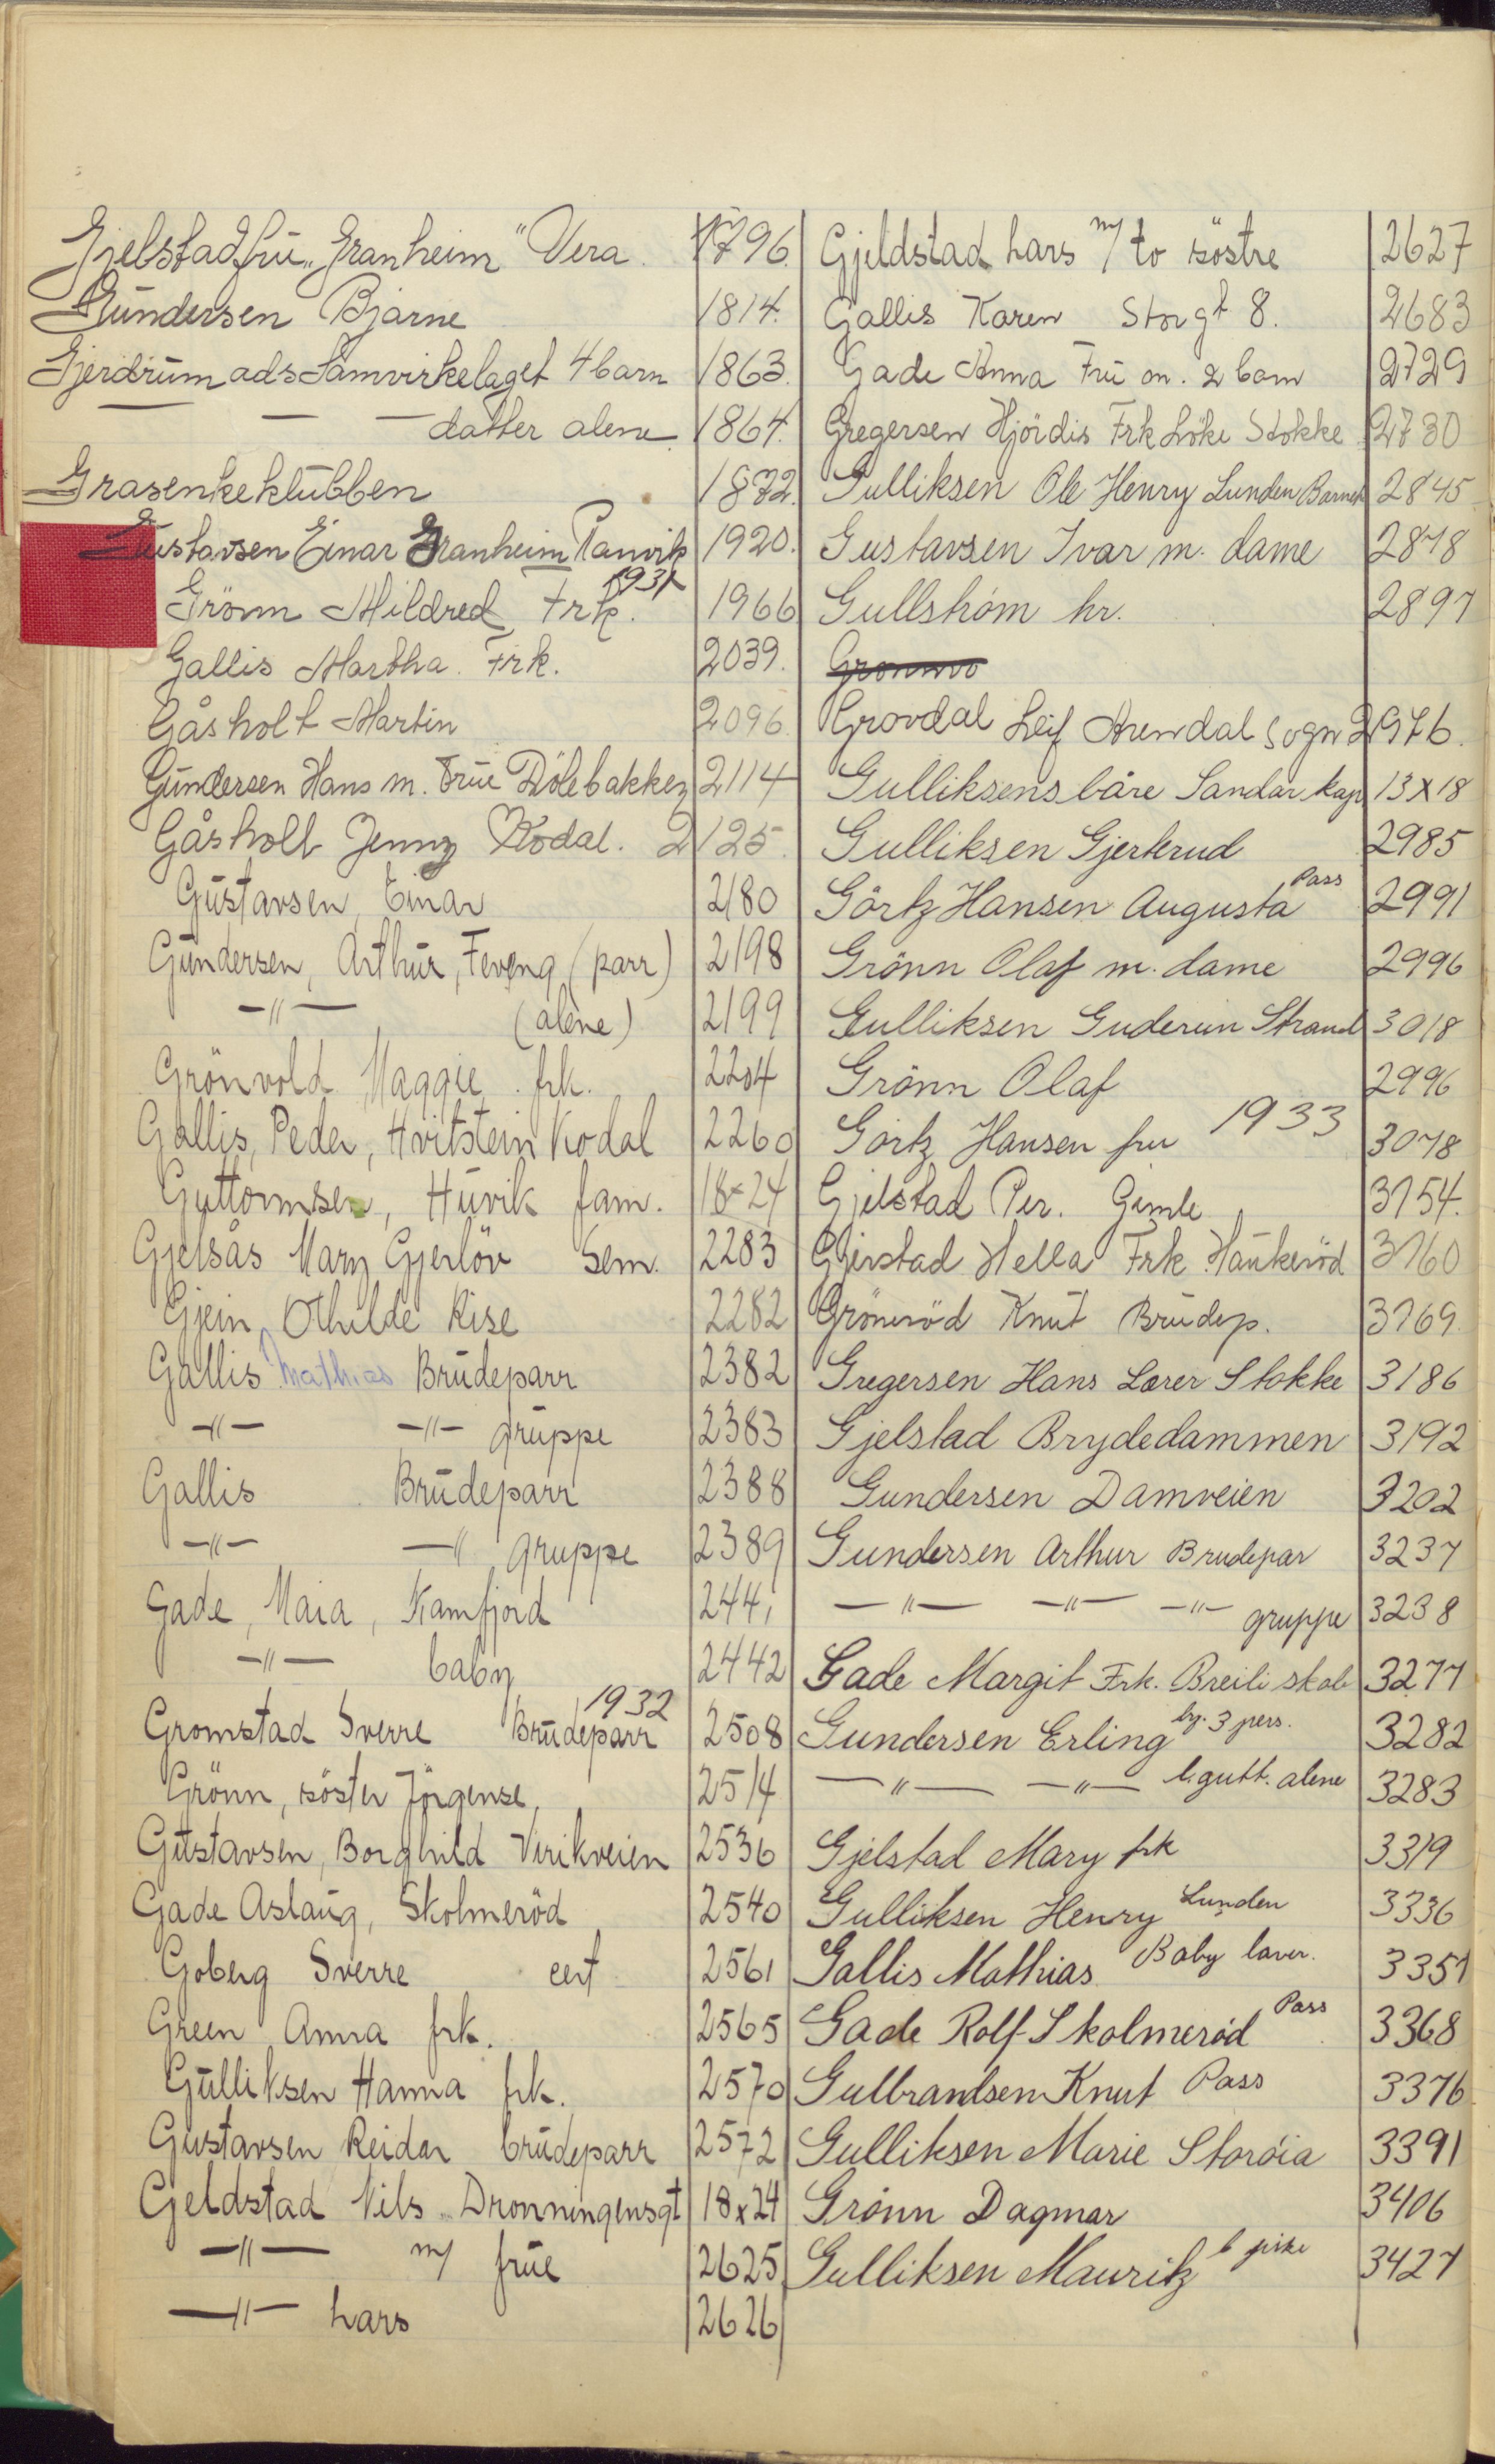 Gjelstad frü „Granheim" Vera. 1796.
Gündersen Bjarne 1814.
Gjerdrüm ads Samvirkelaget 4 barn 1863.
— — — datter alene 1864.
Grasenkeklübben 1872.
Güstavsen Einar Granheim Ranvik 1920.
1931
Grönn Mildred Frk. 1966
Gallis Martha. Frk. 2039.
Gåsholt Martin 2096.
Gündersen Hans m. Frue Dölebakken 2114
Gåsholt Jenny Kodal. 2125.
Güstavsen, Einar 2180
Gündersen, Arthür, Feveng (parr) 2198
—"— (alene) 2199
Grönvold Maggie frk. 2204
Gallis, Peder, Hvitstein Kodal 2260
Guttormsen, Hüvik fam. 18x24
Gjelsås Mary Gjerlöv Sem. 2283
Gjein, Othilde Rise 2282
Gallis Mathias Brüdeparr 2382
—"— —"— grüppe 2383
Gallis Brüdeparr 2388
—"— —" grüppe 2389
Gade, Maia, Kamfjord 2441
—"— baby 2442
1932
Gromstad Sverre Brüdeparr 2508
Grönn, söster Jörgense, 2514
Güstavsen, Borghild Virikveien 2536
Gade Aslaüg, Skolmeröd 2540
Goberg Sverre eert 2561
Green Anna frk. 2565
Gülliksen Hanna frk. 2570
Güstavsen Reidar brüdeparr 2572
Gjeldstad Nils Dronningensgt 18x24
—"— m/ früe 2625
—"— Lars 2626
Gjeldstad Lars m/ to söstre 2627
Gallis Karen Storgt 8. 2683
Gade Anna Frü m. 2 barn 2729
Gregersen Hjördis Frk Löke Stokke 2730
Gulliksen Ole Henry Lunden Barneh 2845
Gustavsen Ivar m. dame 2878
Gullström hr. 2897
Gronnvo
Grovdal Leif Arendal Sogn 2976.
Gulliksens båre Sandar kap 13x18
Gulliksen Gjertrud 2985
Görtz Hansen Augusta Pass 2991
Grönn Olaf m. dame 2996
Gulliksen Guderun Strand 3018
Grönn Olaf 2996
Görtz Hansen fru 1933 3078
Gjelstad Per. Gimle 3154.
Gjerstad Hella Frk Haükeröd 3160
Gröneröd Knüt Brüdep. 3169.
Gregersen Hans Lærer Stokke 3186
Gjelstad Brydedammen 3192
Gundersen Damveien 3202
Gundersen Arthur Brudepar 3237
—"— —"— —"— gruppe 3238
Gade Margit Frk. Breili skole 3277
Gundersen Erling bg. 3 pers. 3282
—"— —"— l. gutt. alene 3283
Gjelstad Mary frk 3319
Gulliksen Henry Lunden 3336
Gallis Mathias Baby laver. 3351
Gade Rolf Skolmeröd Pass 3368
Gulbrandsen Knut Pass 3376
Gulliksen Marie Storöia 3391
Grönn Dagmar 3406
Gulliksen Mauritz l pike 3427